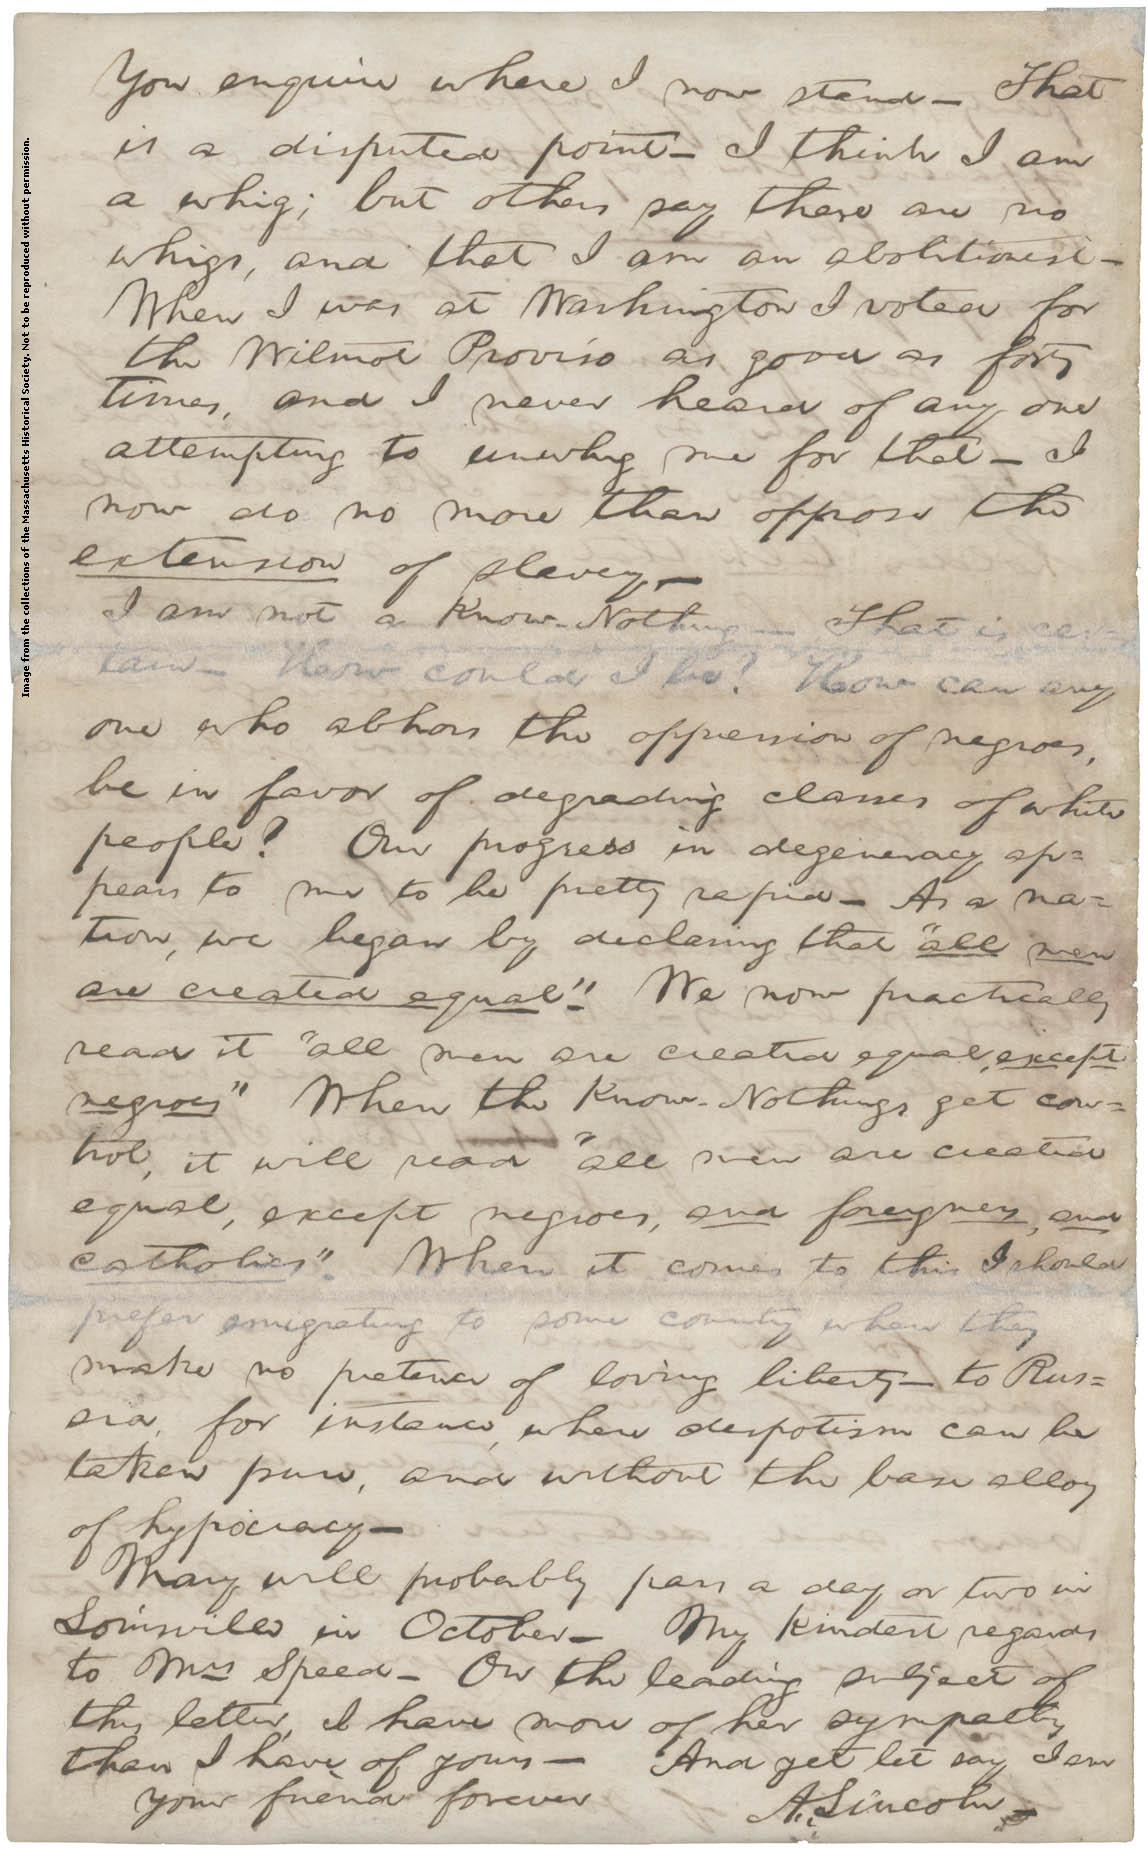 You enquire where I now stand— That
is a disputed point— I think I am
a whig; but others say there are no
whigs, and that I am an abolitionist—
When I was at Washington I voted for
the Wilmot Proviso as good as forty
times, and I never heard of any one
attempting to unwhig me for that— I
now do no more than oppose the
extension of slavery—
I am not a Know-Nothing— That is cer-
tain— How could I be? How can any
one who abhors the oppression of negroes,
be in favor of degrading classes of white
people? Our progress in degeneracy ap=
pears to me to be pretty rapid— As a na=
tion, we began by declaring that "all men
are created equal" We now practically
read it "all men are created equal, except
negroes" When the Know-Nothings get con=
trol, it will read "all men are created
equal, except negroes, and foreigners, and
catholics". When it comes to this I should
prefer emigrating to some country where they
make no pretence of loving liberty— to Rus=
sia, for instance, where despotism can be
taken pure, and without the base alloy
of hypocracy—
Mary will probably pass a day or two in
Louisville in October— My kindest regards
to Mrs Speed— On the leading subject of
this letter, I have more of her sympathy
than I have of yours— And yet let say I am
Your friend forever
A. Lincoln—
Image from the collections of the Massachusetts Historical Society. Not to be reproduced without permission.